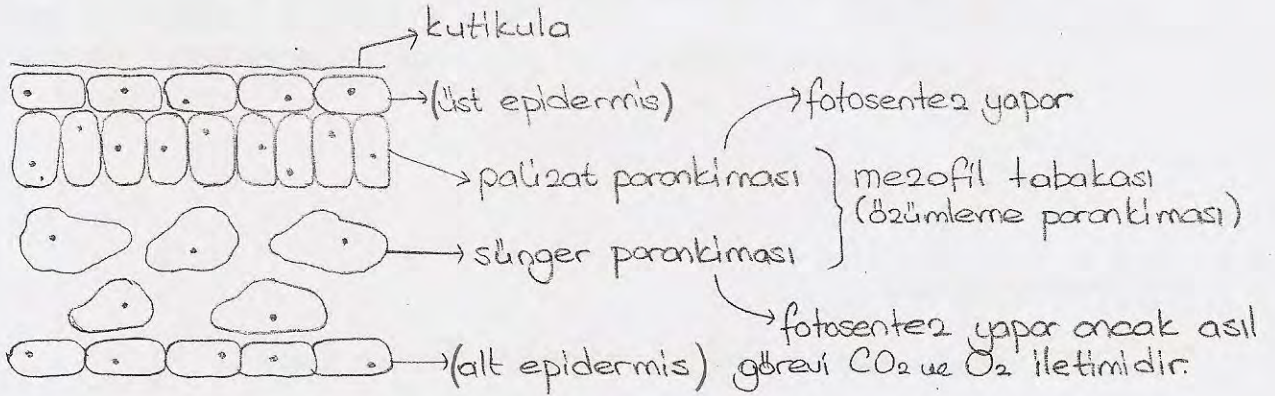 kutikula
(üst epidermis)
fotosentez yapar
palizat parankiması
mezofil tabakası
(özümleme parankiması)
sünger parankiması
fotosentez yapar ancak asıl
görevi CO₂ ve O₂ iletimidir.
(alt epidermis)